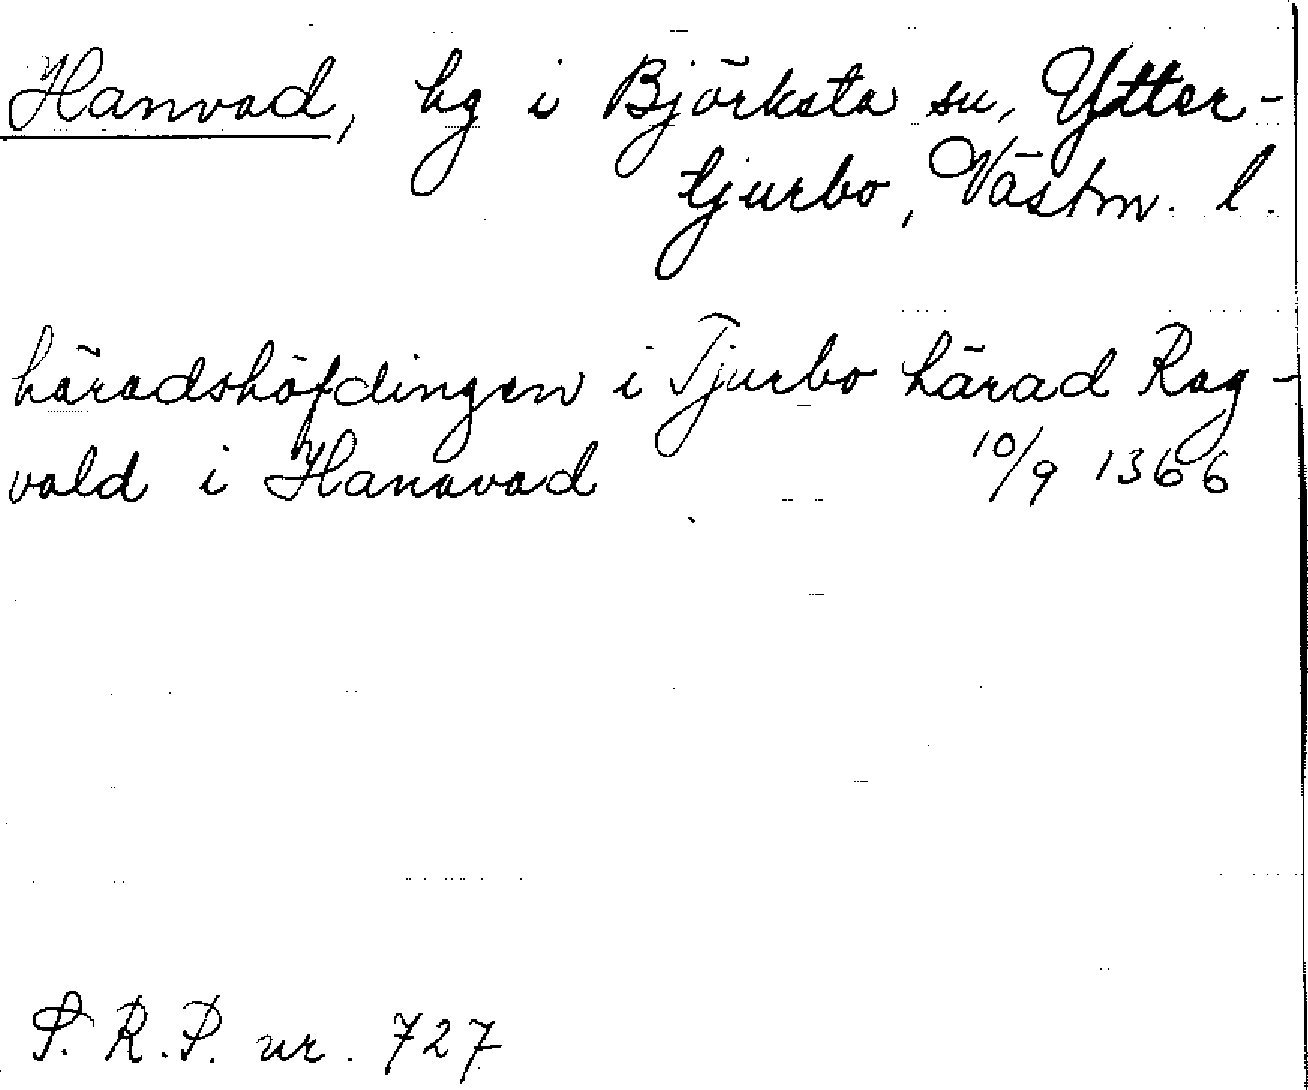 Hanvad, hg i Björksta sn, Ytter-
tjurbo, Västm. l.
häradshöfdingen i Tjurbo härad Rag-
vald i Hanavad 10/9 1366
S. R. P. nr. 727